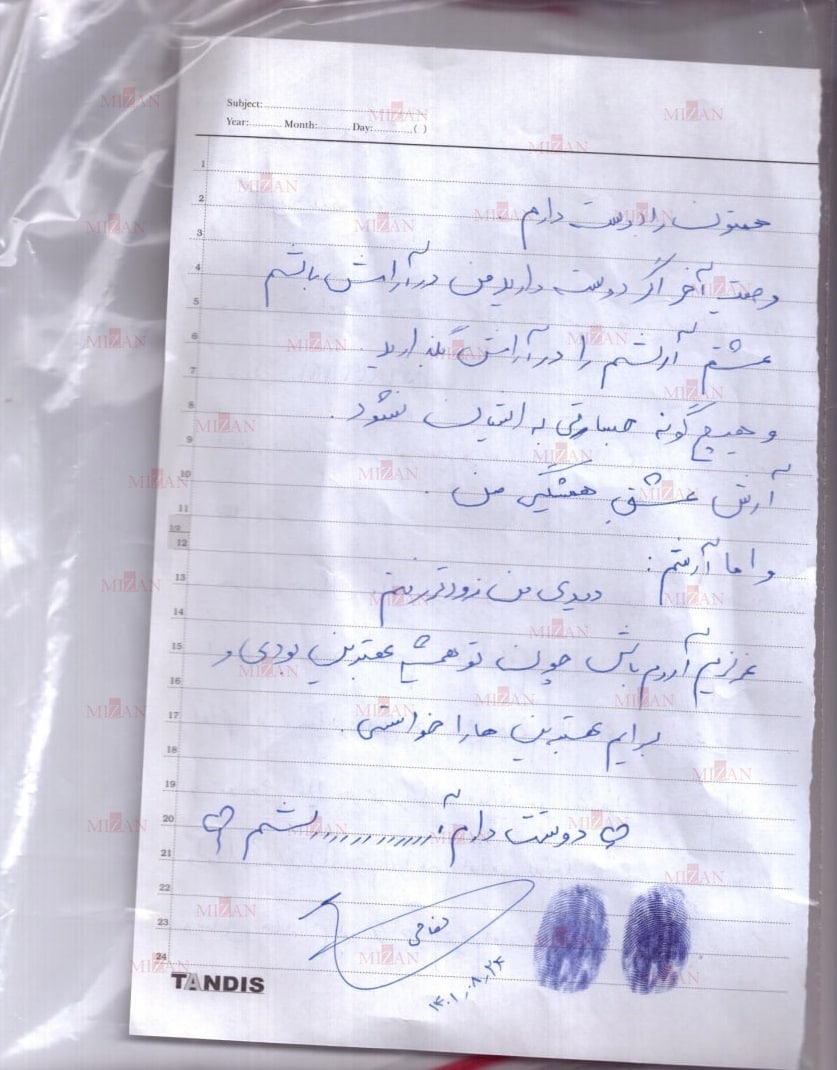 Subject:
Year: Month: Day: ( )
همتون را دوست دارم
وصیت آخر اگر دوست دارید من در آرامش باشم
عشقم آرشم را در آرامش بگذارید
و هیچ گونه جسارتی به ایشان نشود.
آرش عشق همیشگی من.
و اما آرشم:
دیدی من زودتر رفتم
عزیزم آروم باش چون تو همیشه بهترین بودی و
برایم بهترین ها را خواستی.
دوستت دارم آ...........رشم
۱۴۰۱,۰۸,۲۴
1
2
3
4
5
6
7
8
9
10
11
12
13
14
15
16
17
18
19
20
21
22
23
24
TANDIS
MIZAN